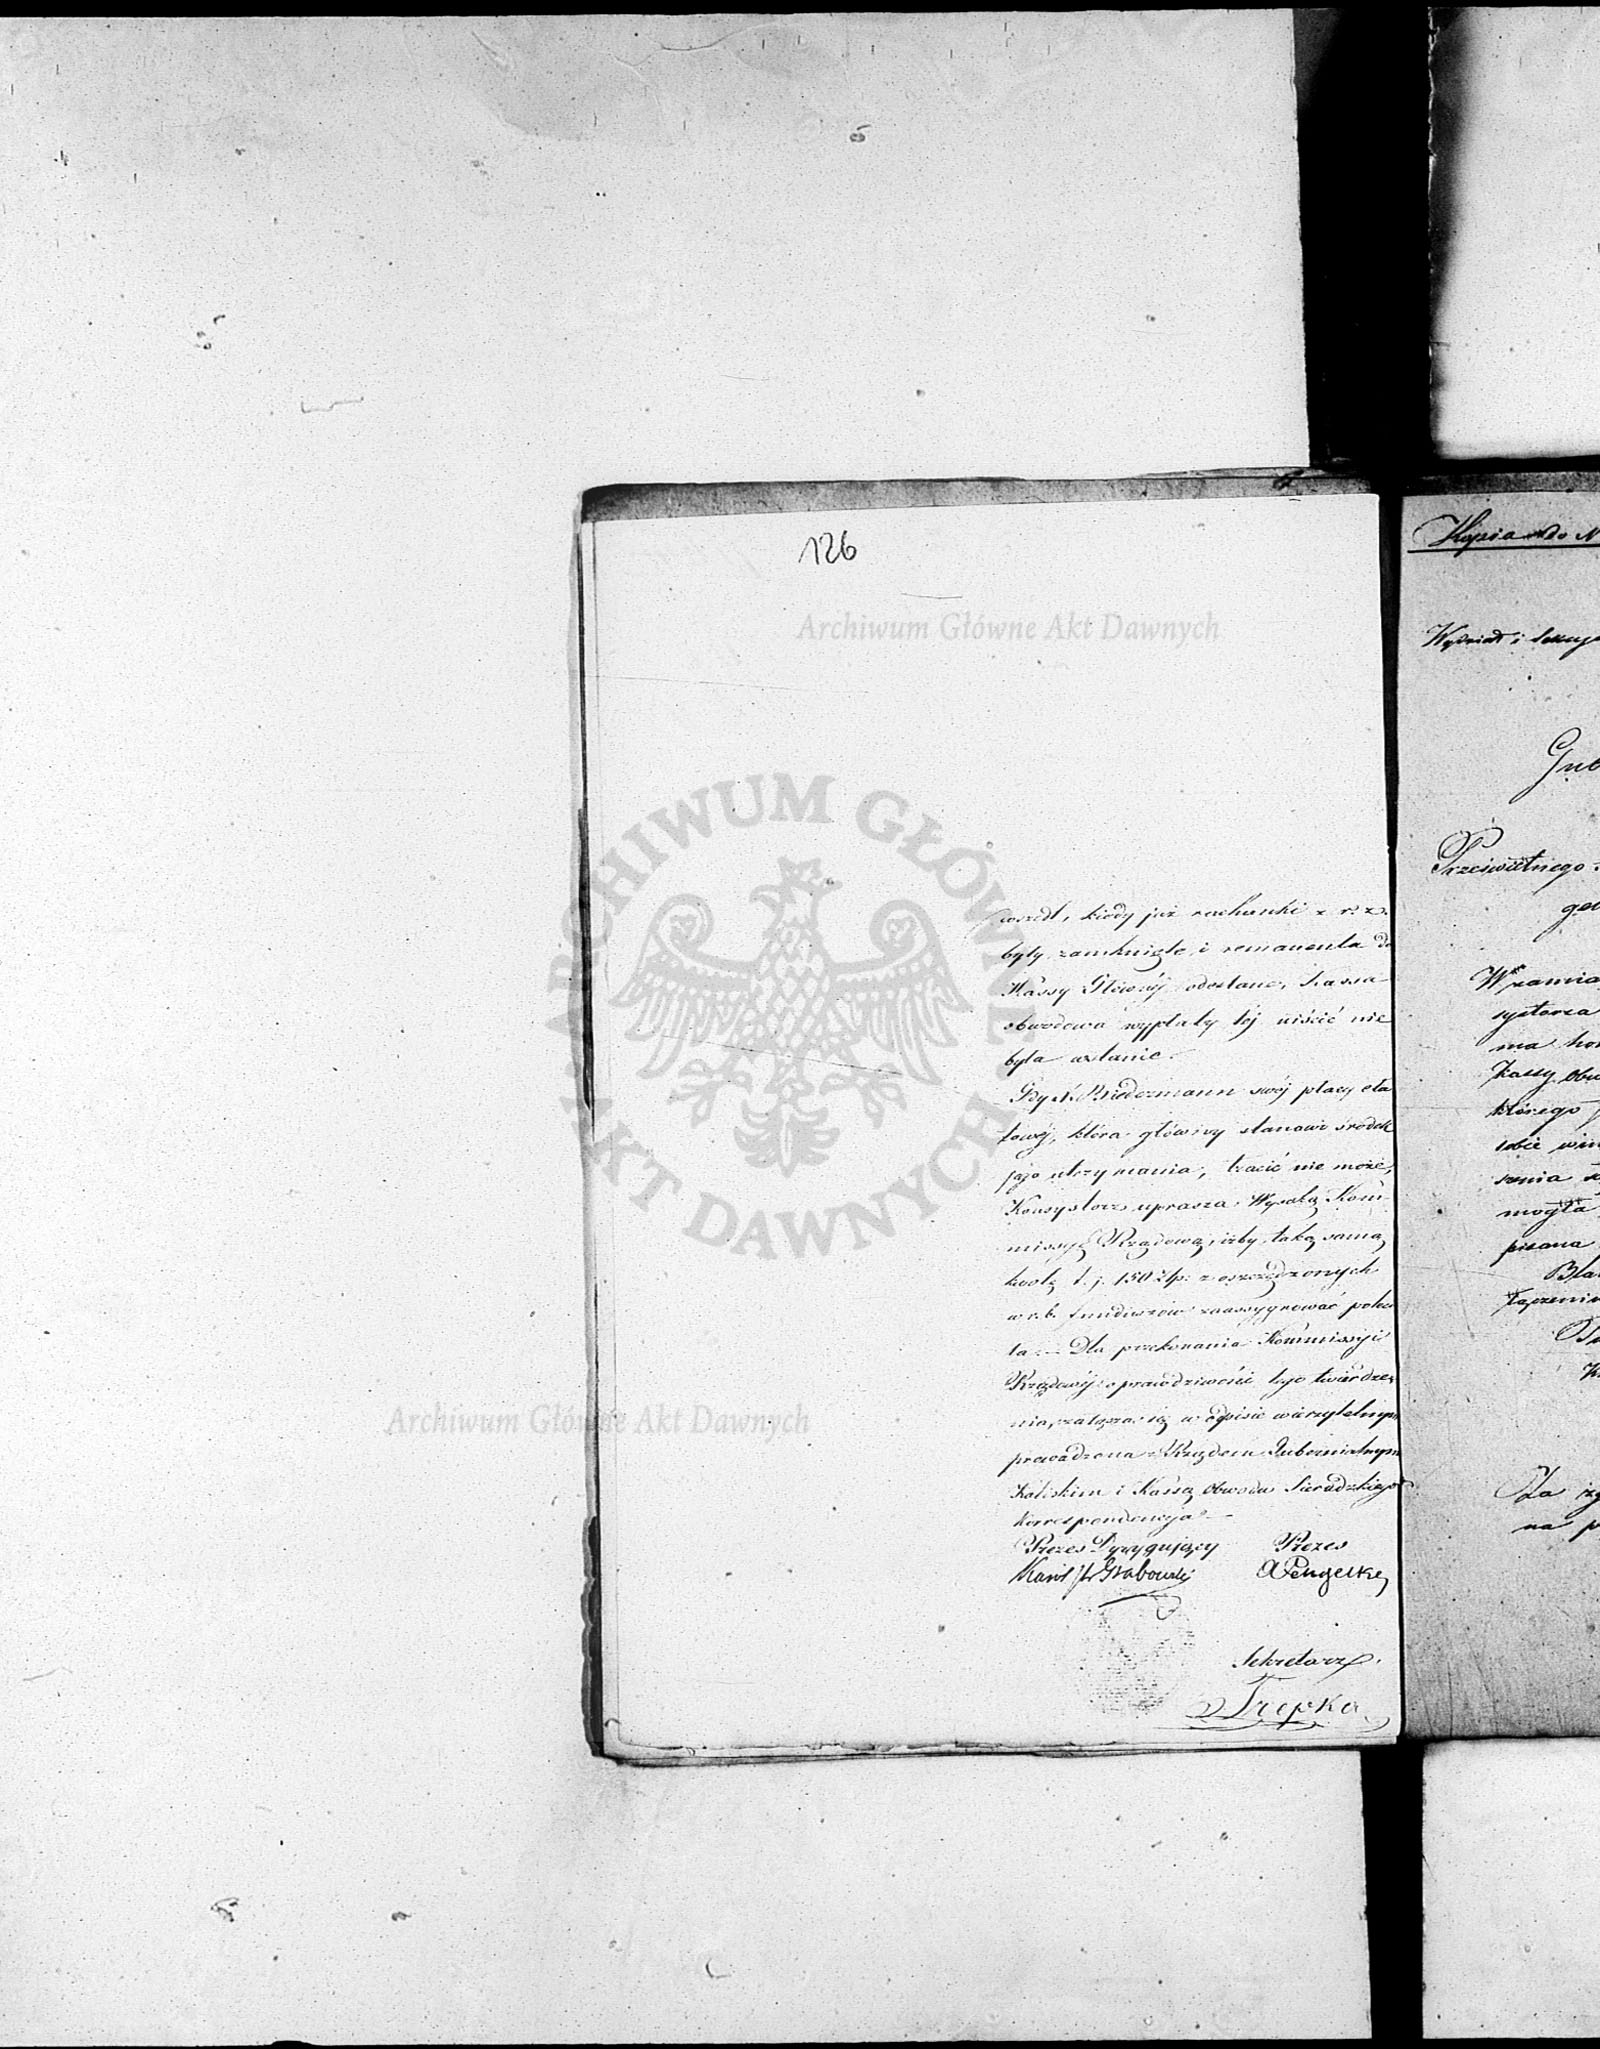 126
Archiwum Główne Akt Dawnych
ARCHIWUM GŁÓWNE AKT DAWNYCH
wszedł, kiedy już rachunki z r. z.
były zamknięte i remanenta do
Kassy Głównéj odesłane, Kassa
obwodowa wypłaty téj uiścić nie
była wstanie.
Gdy X. Biedermann swéj płacy eta
towéj, która główny stanowi środek
jego utrzymania, tracić nie może,
Konsystorz uprasza Wysoką Kom-
missyę Rządową, iżby taką samą
kwotę t. j. 150 złp. z oszczędzonych
w r. b. funduszów zaassygnować poleci
ła. — Dla przekonania Kommissyi
Rządowéj o prawdziwości tego twierdze
nia, załącza się w odpisie wierzytelnym
prowadzona z Rządem Gubernialnym
Kaliskim i Kassą Obwodu Sieradzkiego
korrespondencya. —
Archiwum Główne Akt Dawnych
Prezes Dyrygujący Prezes
Karol Grabowski
Sekretarz
Trepka
Kopia do N
Wydział i Sekcya
Gub
Prześwietnego
W zamia
systorza
ma hon
Kassy Obw
którego
sobie win
szenia
mogła
pisana
łączeni
Za zg
na p